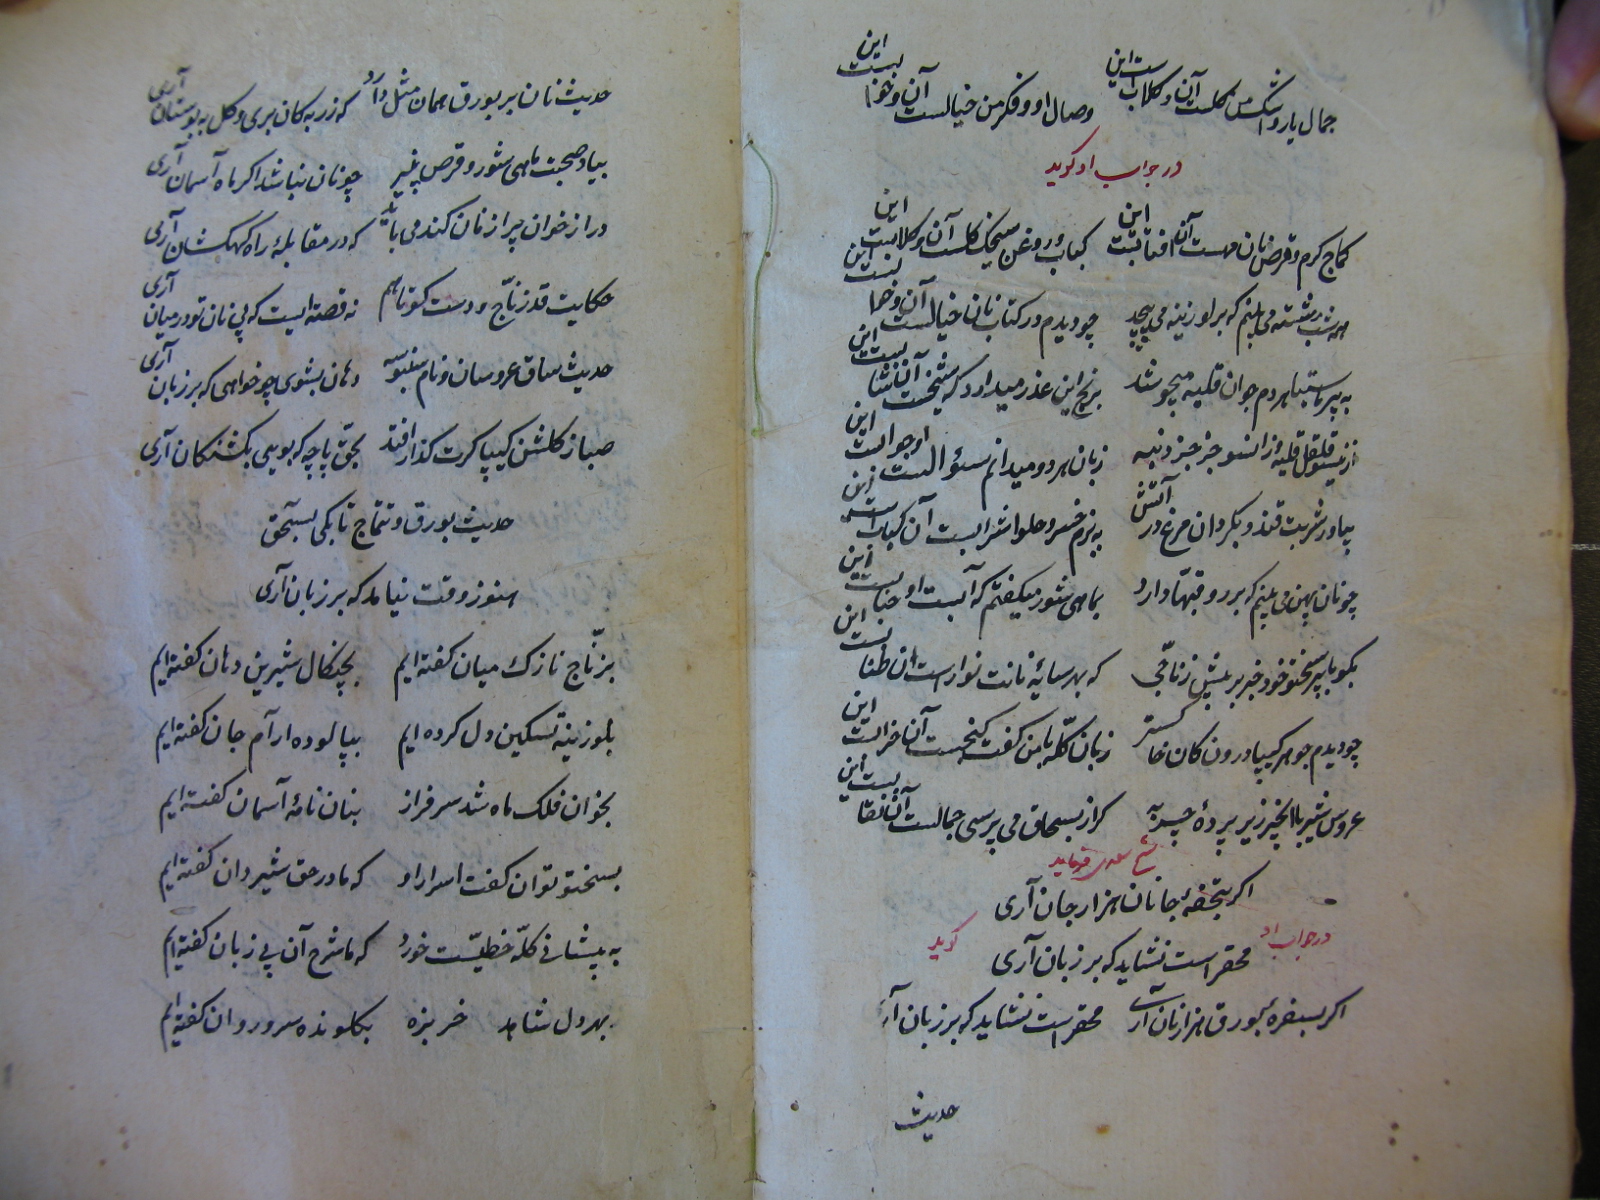 جمال یار و اشک من گلست آن و گلابست این وصال او و فکر من خیالست آن و خوابست این
در جواب او گوید
کماج گرم و قرص نان مهست آن آفتابست این کباب و روغن سیخک گلست آن و گلابست این
همه شب رشته می بینم که بر لوزینه می پیچد چو دیدم در کتاب نان خیالست آن و خوابست این
به پیر ماستبا هر دم جوان قلیه میجوشد برنج این عذر میدارد که شیخست آن شابست این
ازینسو قلقل قلیه ازانسو جز جز دنبه زبان هر دو میدانم سؤالست او جوابست این
بیاور شربت قند و بگردان مرغ در آتش به بزم خسرو حلوا شرابست آن کبابست این
چو نان پهن می بینم که بر رو قبهّا دارد بماهی شور میگفتم که آبست او حبابست این
بگو با پیر سختو خود خبر بر بیش زناجی که بهر سایهٔ نانت نوارست آن طنابست این
چو دیدم جوهر کیپا درون کان خاکستر زبان کلّه با من گفت گنجست آن خرابست این
عروس شیر با انجیر زیر پردهٔ چربه گر از بسحاق می پرسی جمالست آن نقابست این
شیخ سعدی فرماید
اگر بتحفهٔ جانان هزار جان آری
در جواب او گوید
محقر است نشاید که بر زبان آری
اگر بسفرهٔ بورق هزار نان آری محقر است نشاید که بر زبان آری
حدیث
حدیث نان بر بورق همان مثل دارد که زر به کان بری و گل به بوستان آری
بیاد صحبت ماهی شور و قرص پنیر چو نان نباشد اگر ماه آسمان آری
دراز خوان پر از نان گندمی باید که در مقابلهٔ راه کهکشان آری
حکایت قد زنّاج و دست کوتاهم نه قصه ایست که بی نان تو در میان آری
حدیث ساق عروسان و نام سنبوسه دهان بشوی چو خواهی که بر زبان آری
صبا ز گلشن کیپا گرت گذار افتد بحق پاچه که بویی بگشنگان آری
حدیث بورق و تتماج تا بکی بسحق
هنوز وقت نیامد که بر زبان آری
بزنّاج نازک میان گفته ایم بچنگال شیرین دهان گفته ایم
بلوزینه تسکین دل کرده ایم بپالوده آرام جان گفته ایم
بخوان فلک ماه شد سرفراز بنان نامهٔ آسمان گفته ایم
بسختو توان گفت اسرار او که ما در حق شیردان گفته ایم
به پیشانی کلّه خطیّست خورد که ما شرح آن بی زبان گفته ایم
بهر دل شاهد خربزه بکلونده سرو روان گفته ایم